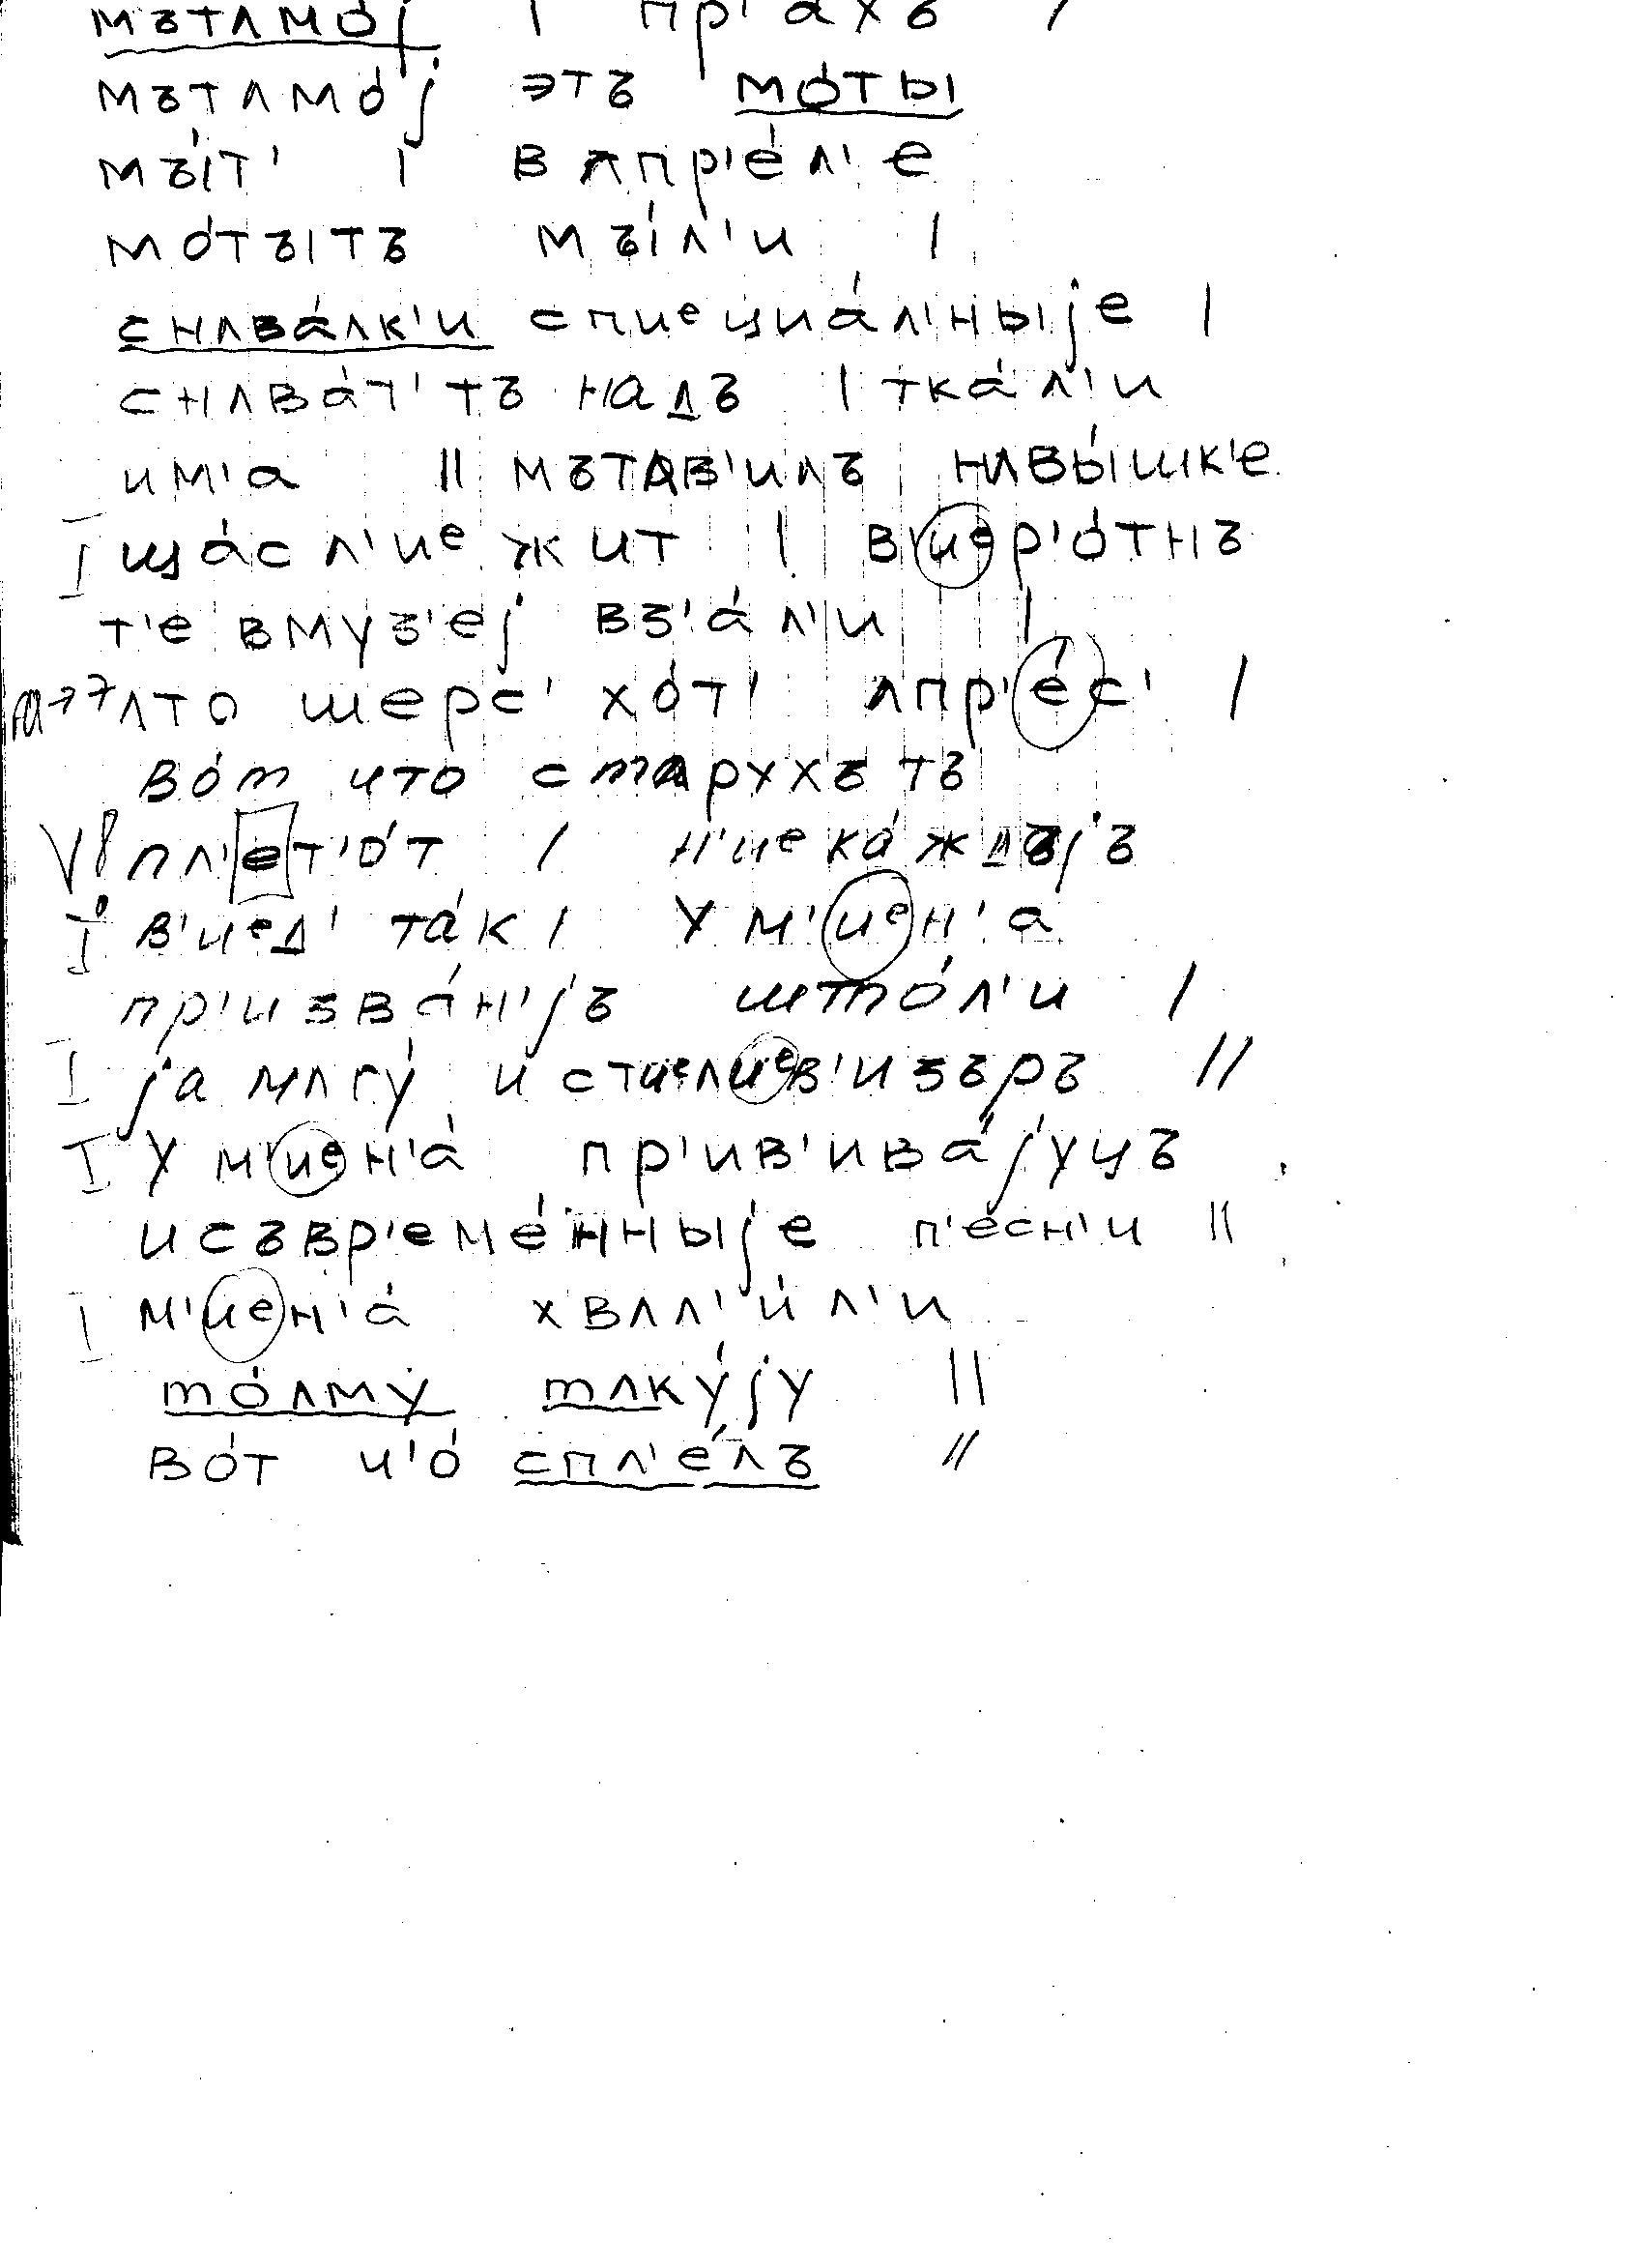 мътʌмо́j | пр'а́хъ /
мътʌмо́j этъ мо́ты
мы́т' | в ʌпр'е́л'е
мо́тытъ мы́л'и |
снʌва́лк'и спиᵉциа́л'ныjе |
снʌва́т'тъ надъ | тка́л'и
им'а || мътʌв'илъ нʌвы́шк'е
I ща́сл'иᵉ жит | в'иᵉр'о́тнъ
т'е вмуз'еj вз'а́л'и |
ʌто шерс' хо́т' ʌпр'е́с' |
во́т что стʌруххъ тъ
пл'ет'о́т / н'иᵉ ка́ждъjъ
I в'иᵉд' та́к / у м'иᵉн'а
пр'изва́н'jъ што́л'и /
I jа мʌгу́ и стиᵉлиᵉв'изъръ //
I у м'иᵉн'а́ пр'ив'ива́jуцъ
исъвр'еме́нныjе п'е́сн'и ||
I м'иᵉн'а́ хвʌл'и́л'и
то́лму тʌку́jу ||
во́т ч'о́ спл'е́лъ //